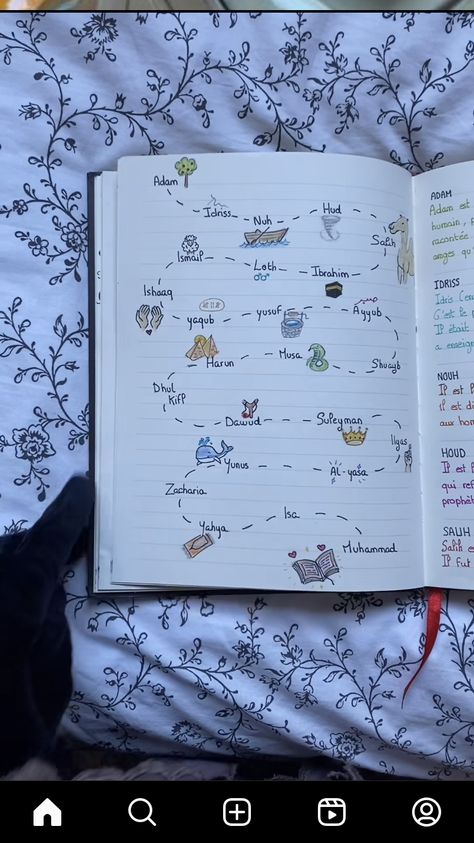 Adam
Idriss
Nuh
Hud
Salih
Ibrahim
Loth
Ismaïl
Ishaaq
yaqub
yusuf
Ayyub
Shuayb
Musa
Harun
Dhul
Kifl
Dawud
Suleyman
Ilyas
Al-yasa
Yunus
Zacharia
Yahya
Isa
Muhammad
ADAM
Adam est
humain,
racontée
anges qu'
IDRISS
Idris
C'est le
Il était
a enseign
NOUH
Il est
il est di
aux hom
HOUD
Il est
qui ref
prophèt
SALIH
Salih es
Il fut